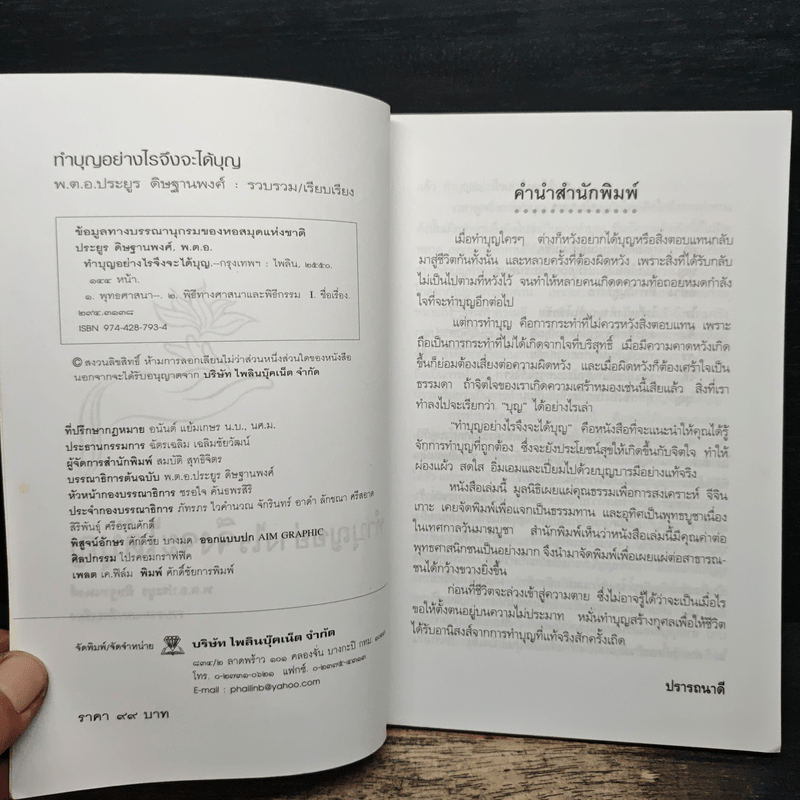 ทำบุญอย่างไรจึงจะได้บุญ
พ.ต.อ.ประยูร ดิษฐานพงศ์ : รวบรวม/เรียบเรียง
ข้อมูลทางบรรณานุกรมของหอสมุดแห่งชาติ
ประยูร ดิษฐานพงศ์. พ.ต.อ.
ทำบุญอย่างไรจึงจะได้บุญ.–กรุงเทพฯ : ไพลิน. ๒๕๕๐.
๑๔๔ หน้า.
๑. พุทธศาสนา–. ๒. พิธีทางศาสนาและพิธีกรรม I. ชื่อเรื่อง.
๒๙๔.๓๑๓๘
ISBN 974-428-793-4
© สงวนลิขสิทธิ์ ห้ามการลอกเลียนไม่ว่าส่วนหนึ่งส่วนใดของหนังสือ
นอกจากจะได้รับอนุญาตจาก บริษัท ไพลินบุ๊คเน็ต จำกัด
ที่ปรึกษากฎหมาย อนันต์ แย้มเกษร น.บ., นศ.ม.
ประธานกรรมการ ฉัตรเฉลิม เฉลิมชัยวัฒน์
ผู้จัดการสำนักพิมพ์ สมบัติ สุทธิจิตร
บรรณาธิการต้นฉบับ พ.ต.อ.ประยูร ดิษฐานพงศ์
หัวหน้ากองบรรณาธิการ ธรอใจ คันธพรสิริ
ประจำกองบรรณาธิการ ภัทรภร ไวคำนวณ จักรินทร์ อาดำ ลักขณา ศรีสอาด
สิริพันธุ์ ศรีอรุณศักดิ์
พิสูจน์อักษร ศักดิ์ชัย บางมด ออกแบบปก AIM GRAPHIC
ศิลปกรรม โปรคอมกราฟฟิค
เพลต เค.ฟิล์ม พิมพ์ ศักดิ์ชัยการพิมพ์
จัดพิมพ์/จัดจำหน่าย บริษัท ไพลินบุ๊คเน็ต จำกัด
๘๓๔/๒ ลาดพร้าว ๑๐๑ คลองจั่น บางกะปิ กทม.
โทร. ๐-๒๗๓๑-๐๖๒๑ แฟกซ์.
E-mail : phailinb@yahoo.com
ราคา ๙๙ บาท
คำนำสำนักพิมพ์
เมื่อทำบุญใครๆ ต่างก็หวังอยากได้บุญหรือสิ่งตอบแทนกลับ
มาสู่ชีวิตกันทั้งนั้น และหลายครั้งที่ต้องผิดหวัง เพราะสิ่งที่ได้รับกลับ
ไม่เป็นไปตามที่หวังไว้ จนทำให้หลายคนเกิดความท้อถอยหมดกำลัง
ใจที่จะทำบุญอีกต่อไป
แต่การทำบุญ คือการกระทำที่ไม่ควรหวังสิ่งตอบแทน เพราะ
ถือเป็นการกระทำที่ไม่ได้เกิดจากใจที่บริสุทธิ์ เมื่อมีความคาดหวังเกิด
ขึ้นก็ย่อมต้องเสี่ยงต่อความผิดหวัง และเมื่อผิดหวังก็ต้องเศร้าใจเป็น
ธรรมดา ถ้าจิตใจของเราเกิดความเศร้าหมองเช่นนี้เสียแล้ว สิ่งที่เรา
ทำลงไปจะเรียกว่า "บุญ" ได้อย่างไรเล่า
"ทำบุญอย่างไรจึงจะได้บุญ" คือหนังสือที่จะแนะนำให้คุณได้รู้
จักการทำบุญที่ถูกต้อง ซึ่งจะยังประโยชน์สุขให้เกิดขึ้นกับจิตใจ ทำให้
ผ่องแผ้ว สดใส อิ่มเอมและเปี่ยมไปด้วยบุญบารมีอย่างแท้จริง
หนังสือเล่มนี้ มูลนิธิเผยแผ่คุณธรรมเพื่อการสงเคราะห์ จีจินเกาะ
เกาะ เคยจัดพิมพ์เพื่อแจกเป็นธรรมทาน และอุทิศเป็นพุทธบูชาเนื่อง
ในเทศกาลวันมาฆบูชา สำนักพิมพ์เห็นว่าหนังสือเล่มนี้มีคุณค่าต่อ
พุทธศาสนิกชนเป็นอย่างมาก จึงนำมาจัดพิมพ์เพื่อเผยแผ่ต่อสาธารณ-
ชนได้กว้างขวางยิ่งขึ้น
ก่อนที่ชีวิตจะล่วงเข้าสู่ความตาย ซึ่งไม่อาจรู้ได้ว่าจะเป็นเมื่อไร
ขอให้ตั้งตนอยู่บนความไม่ประมาท หมั่นทำบุญสร้างกุศลเพื่อให้ชีวิต
ได้รับอานิสงส์จากการทำบุญที่แท้จริงสักครั้งเถิด
ปรารถนาดี